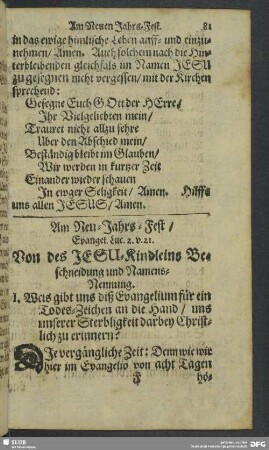 Am Neuen Jahrs-Fest. 81
in das ewige himlische Leben auff- und einzu-
nehmen / Amen. Auch solchem nach die Hin-
terbleibenden gleichfals im Namen JESU
zu gesegnen nicht vergessen / mit der Kirchen
sprechend:
Gesegne Euch GOtt der HErre /
Ihr Vielgeliebten mein /
Trauret nicht allzu sehre
Über den Abschied mein /
Beständig bleibt im Glauben /
Wir werden in kurtzer Zeit
Einander wieder schauen
In ewger Seligkeit / Amen. Hilffs
uns allen JESUS / Amen.
Am Neu-Jahrs-Fest /
Evangel. Luc. 2. v. 21.
Von des JESU-Kindleins Be-
schneidung und Namens-
Nennung.
1. Was gibt uns diß Evangelium für ein
Todes-Zeichen an die Hand / uns
unserer Sterbligkeit darbey Christ-
lich zu erinnern?
DIe vergängliche Zeit: Denn wie wir
hier im Evangelio von acht Tagen
F hö-
SLUB